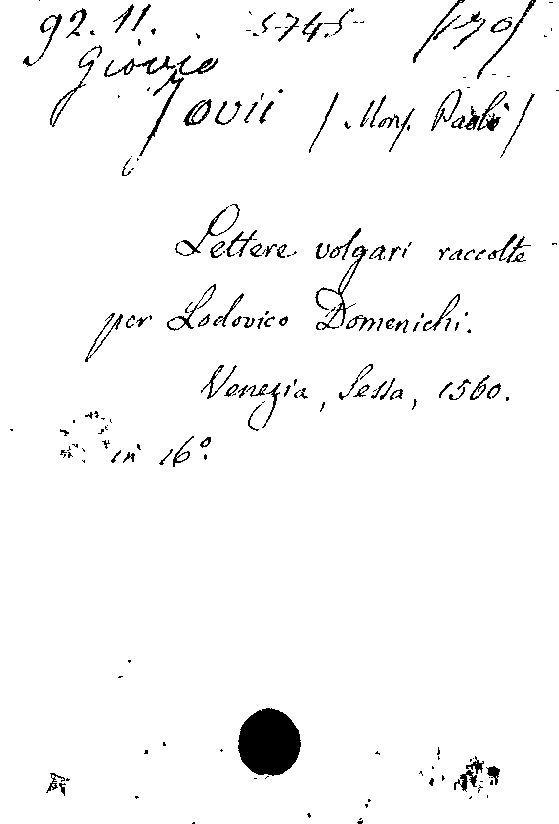 92. 11. 5745 (170)
Giovio
Jovii (Mons. Paolo)
Lettere volgari raccolte
per Lodovico Domenichi.
Venezia, Sessa, 1560.
in 16º